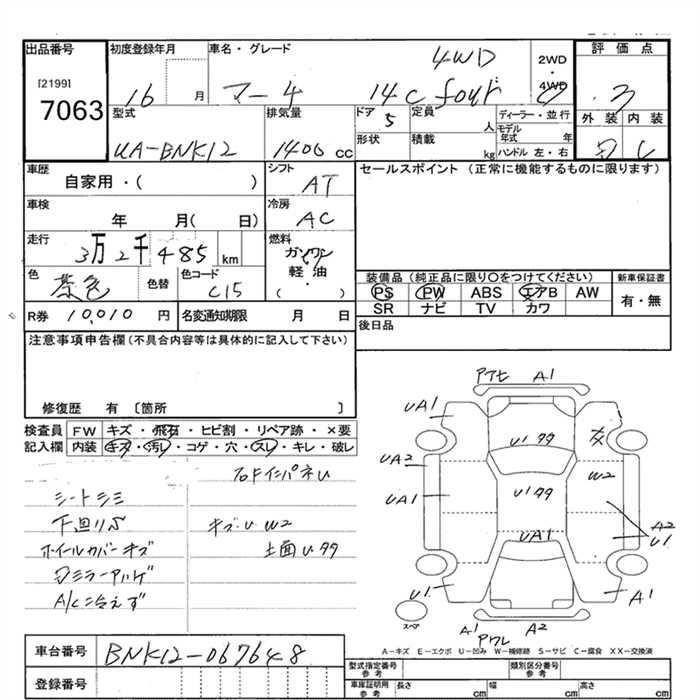 出品番号
[2199]
7063
初度登録年月
16 月
車名・グレード
マーチ 14c four 4WD
2WD
・
4WD
評価点
3
外装 内装
型式
UA-BNK12
排気量
1400 cc
ドア
5
定員
人
ディーラー・並行
モデル年式 年
形状
積載
kg
ハンドル 左・右
車歴
自家用・( )
シフト
AT
セールスポイント(正常に機能するものに限ります)
車検
年 月( 日)
冷房
AC
走行
3万2千485 km
燃料
ガソリン
軽油・
( )
色
茶色
色替
色コード
C15
装備品(純正品に限り○をつけてください)
新車保証書
PS PW ABS エアB AW
SR ナビ TV カワ
有・無
R券 10,010 円
名変通知期限 月 日
後日品
注意事項申告欄(不具合内容等は具体的に記入して下さい)
修復歴 有 〔箇所 〕
検査員記入欄
FW キズ・飛石・ヒビ割・リペア跡・×要
内装 キズ・汚レ・コゲ・穴・スレ・キレ・破レ
右Fインパネ U
シートシミ
下廻りサビ
キズ・U W2
ホイールカバーキズ
上面 U タタ
A/C冷えず
アクセ A1
UA1
U1 タタ
UA2
W2
UA1
U1 タタ
UA1
A2
U1
U1
A1
スペア
A1 A2
アクレ
A-キズ E-エクボ U-凹み W-補修跡 S-サビ C-腐食 XX-交換済
車台番号
BNK12-067648
登録番号
型式指定番号
参考
類別区分番号
参考
車庫証明用
参考
長さ cm
幅 cm
高さ cm